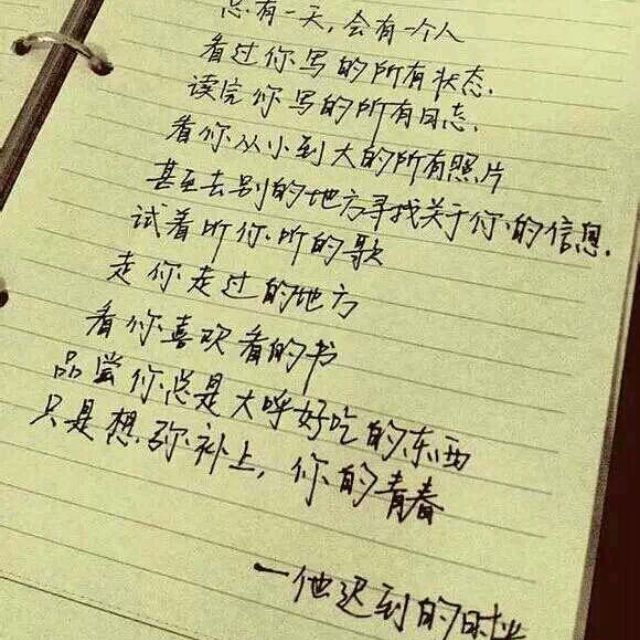 总有一天,会有一个人
看过你写的所有状态.
读完你写的所有日志.
看你从小到大的所有照片
甚至去别的地方寻找关于你的信息.
试着听你听的歌
走你走过的地方
看你喜欢看的书
品尝你总是大呼好吃的东西
只是想弥补上,你的青春
一他迟到的时